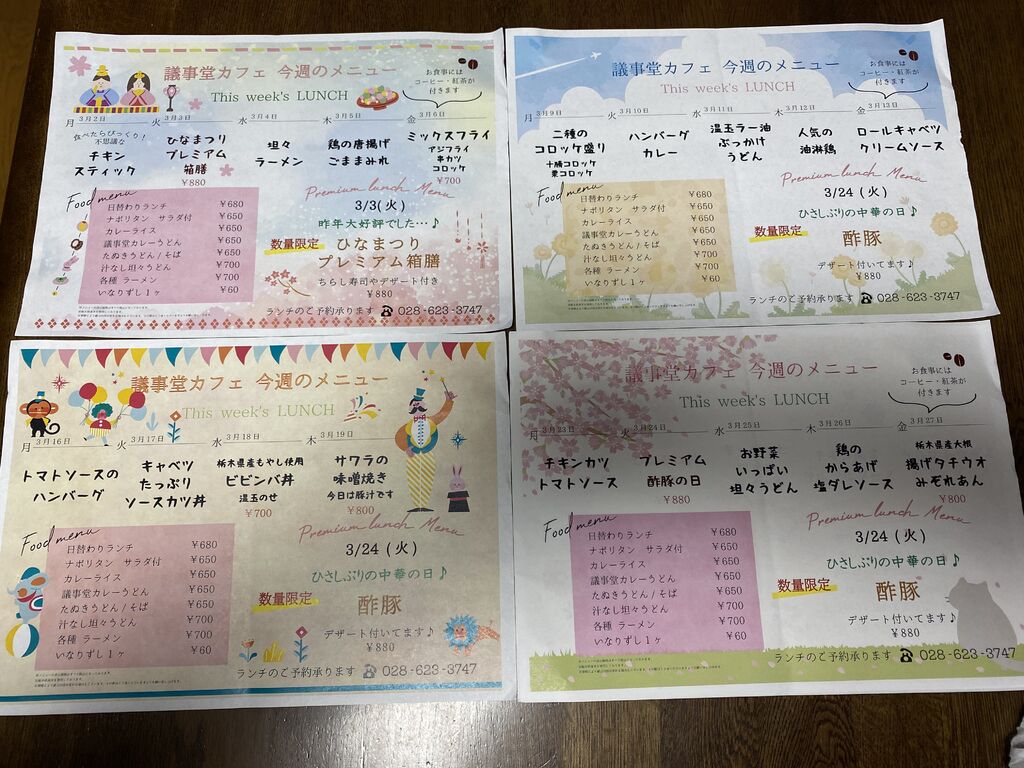 議事堂カフェ 今週のメニュー
This week's LUNCH
お食事には
コーヒー・紅茶が
付きます
月 3月2日 火 3月3日 水 3月4日 木 3月5日 金 3月6日
食べたらびっくり!
不思議な
チキン
スティック
ひなまつり
プレミアム
箱膳
¥880
坦々
ラーメン
鶏の唐揚げ
ごままみれ
ミックスフライ
アジフライ
串カツ
コロッケ
¥700
Food menu
日替わりランチ ¥680
ナポリタン サラダ付 ¥650
カレーライス ¥650
議事堂カレーうどん ¥650
たぬきうどん/そば ¥650
汁なし坦々うどん ¥700
各種 ラーメン ¥700
いなりずし1ヶ ¥60
Premium lunch Menu
3/3(火)
昨年大好評でした…♪
数量限定
ひなまつり
プレミアム箱膳
ちらし寿司やデザート付き
¥880
ランチのご予約承ります ☎ 028-623-3747
議事堂カフェ 今週のメニュー
This week's LUNCH
お食事には
コーヒー・紅茶が
付きます
月 3月9日 火 3月10日 水 3月11日 木 3月12日 金 3月13日
二種の
コロッケ盛り
十勝コロッケ
栗コロッケ
ハンバーグ
カレー
温玉ラー油
ぶっかけ
うどん
人気の
油淋鶏
ロールキャベツ
クリームソース
Food menu
日替わりランチ ¥680
ナポリタン サラダ付 ¥650
カレーライス ¥650
議事堂カレーうどん ¥650
たぬきうどん/そば ¥650
汁なし坦々うどん ¥700
各種 ラーメン ¥700
いなりずし1ヶ ¥60
Premium lunch Menu
3/24 (火)
ひさしぶりの中華の日♪
数量限定
酢豚
デザート付いてます♪
¥880
ランチのご予約承ります ☎ 028-623-3747
議事堂カフェ 今週のメニュー
This week's LUNCH
月 3月16日 火 3月17日 水 3月18日 木 3月19日
トマトソースの
ハンバーグ
キャベツ
たっぷり
ソースカツ丼
栃木県産もやし使用
ビビンバ丼
温玉のせ
¥700
サワラの
味噌焼き
今日は豚汁です
¥800
Food menu
日替わりランチ ¥680
ナポリタン サラダ付 ¥650
カレーライス ¥650
議事堂カレーうどん ¥650
たぬきうどん/そば ¥650
汁なし坦々うどん ¥700
各種 ラーメン ¥700
いなりずし1ヶ ¥60
Premium lunch Menu
3/24 (火)
ひさしぶりの中華の日♪
数量限定
酢豚
デザート付いてます♪
¥880
ランチのご予約承ります ☎ 028-623-3747
議事堂カフェ 今週のメニュー
This week's LUNCH
お食事には
コーヒー・紅茶が
付きます
月 3月23日 火 3月24日 水 3月25日 木 3月26日 金 3月27日
チキンカツ
トマトソース
プレミアム
酢豚の日
¥880
お野菜
いっぱい
坦々うどん
鶏の
からあげ
塩ダレソース
栃木県産大根
揚げタチウオ
みぞれあん
¥800
Food menu
日替わりランチ ¥680
ナポリタン サラダ付 ¥650
カレーライス ¥650
議事堂カレーうどん ¥650
たぬきうどん/そば ¥650
汁なし坦々うどん ¥700
各種 ラーメン ¥700
いなりずし1ヶ ¥60
Premium lunch Menu
3/24 (火)
ひさしぶりの中華の日♪
数量限定
酢豚
デザート付いてます♪
¥880
ランチのご予約承ります ☎ 028-623-3747